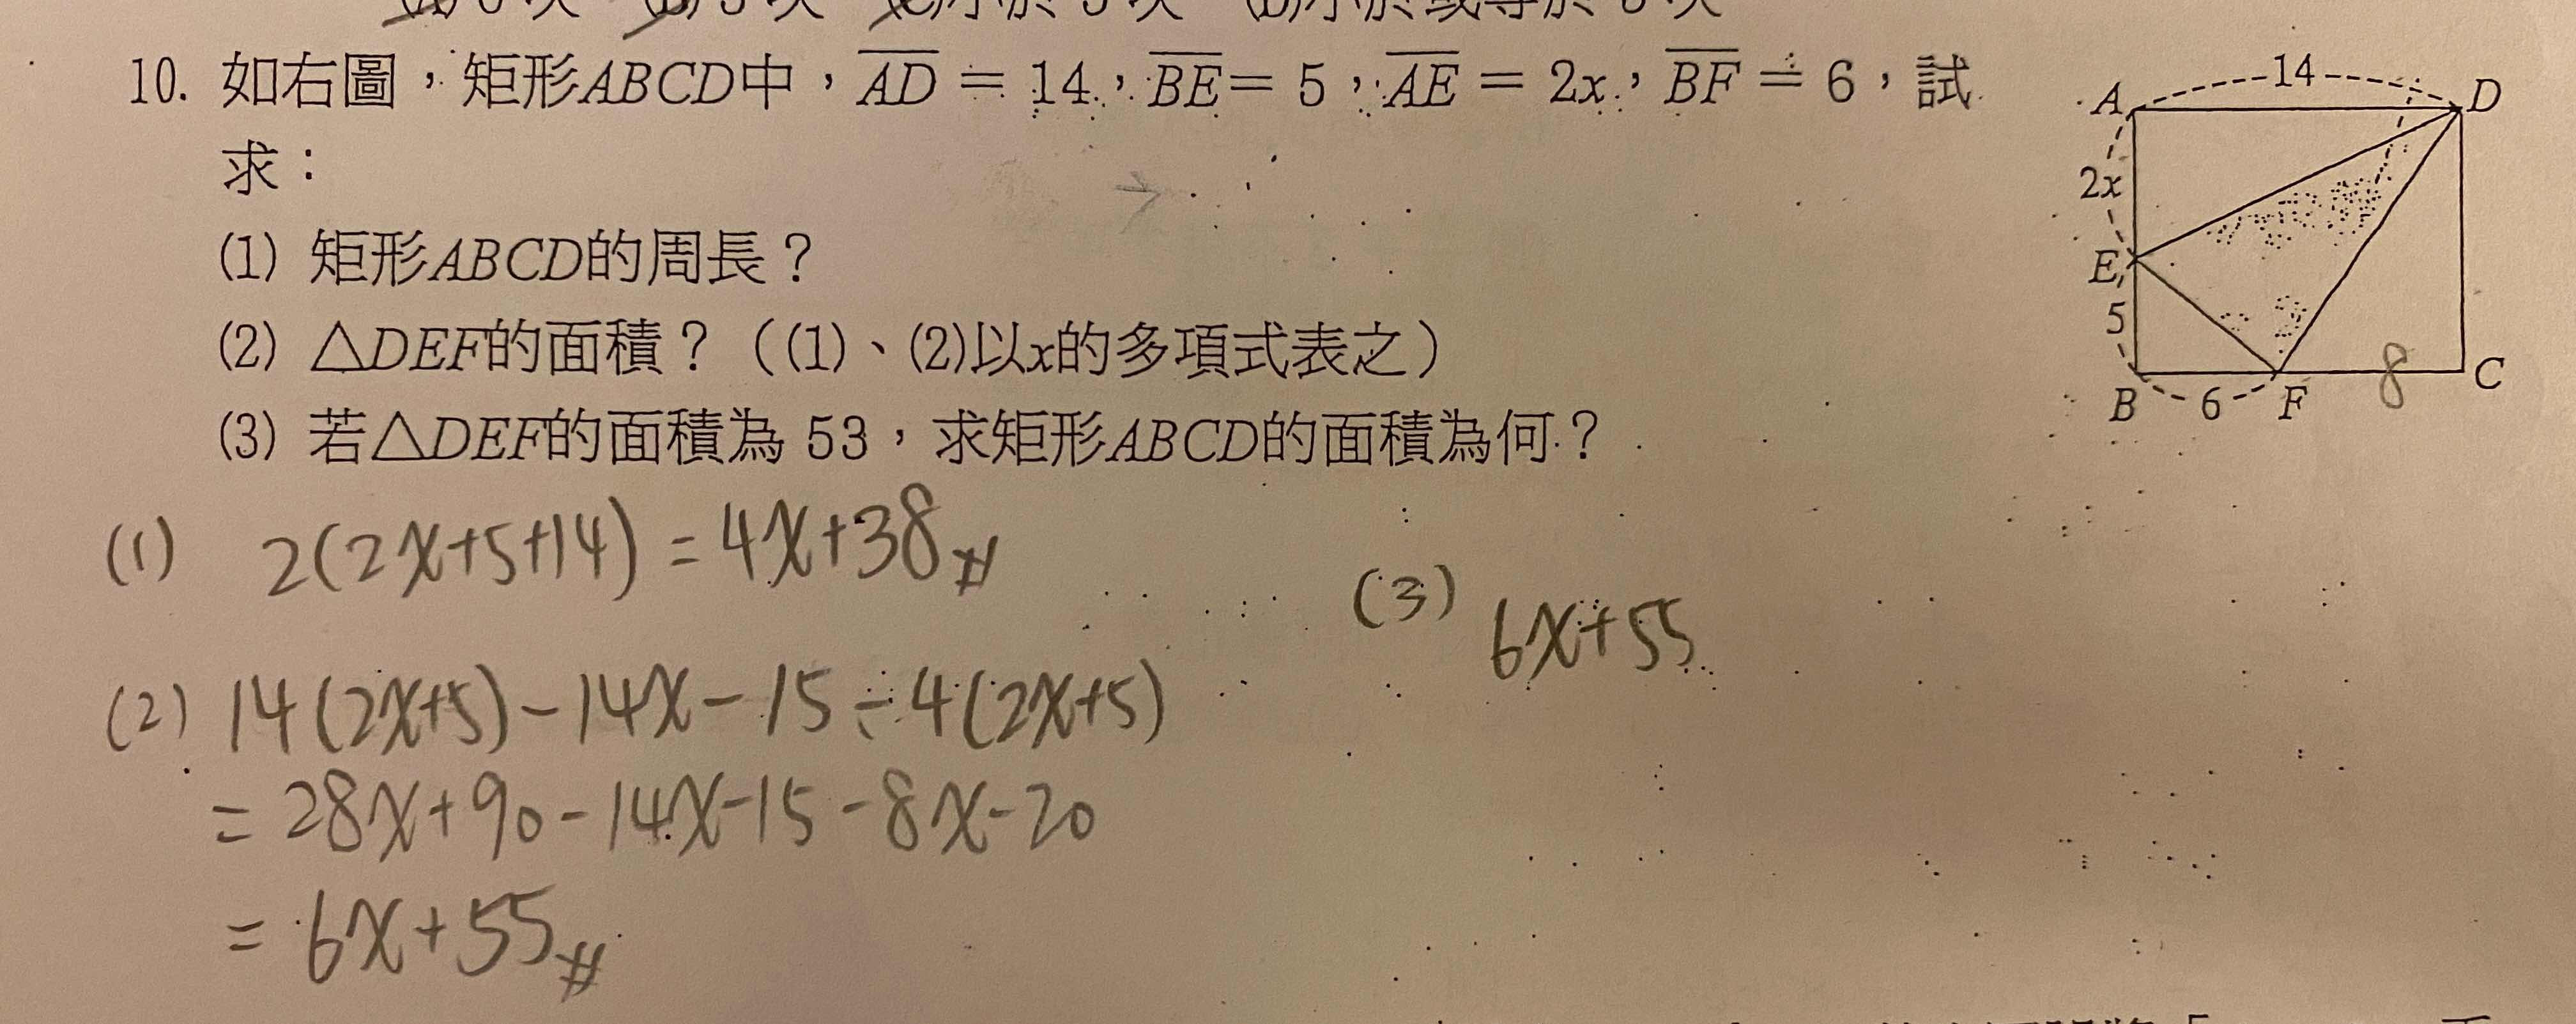 10. 如右圖，矩形ABCD中，AD = 14，BE = 5，AE = 2x，BF = 6，試
求：
(1) 矩形ABCD的周長？
(2) △DEF的面積？（(1)、(2)以x的多項式表之）
(3) 若△DEF的面積為 53，求矩形ABCD的面積為何？
14
A
D
2x
E
5
8
B
6
F
C
(1) 2(2x+5+14) = 4x+38#
(3) 6x+55
(2) 14(2x+5)-14x-15-4(2x+5)
= 28x+90-14x-15-8x-20
= 6x+55#